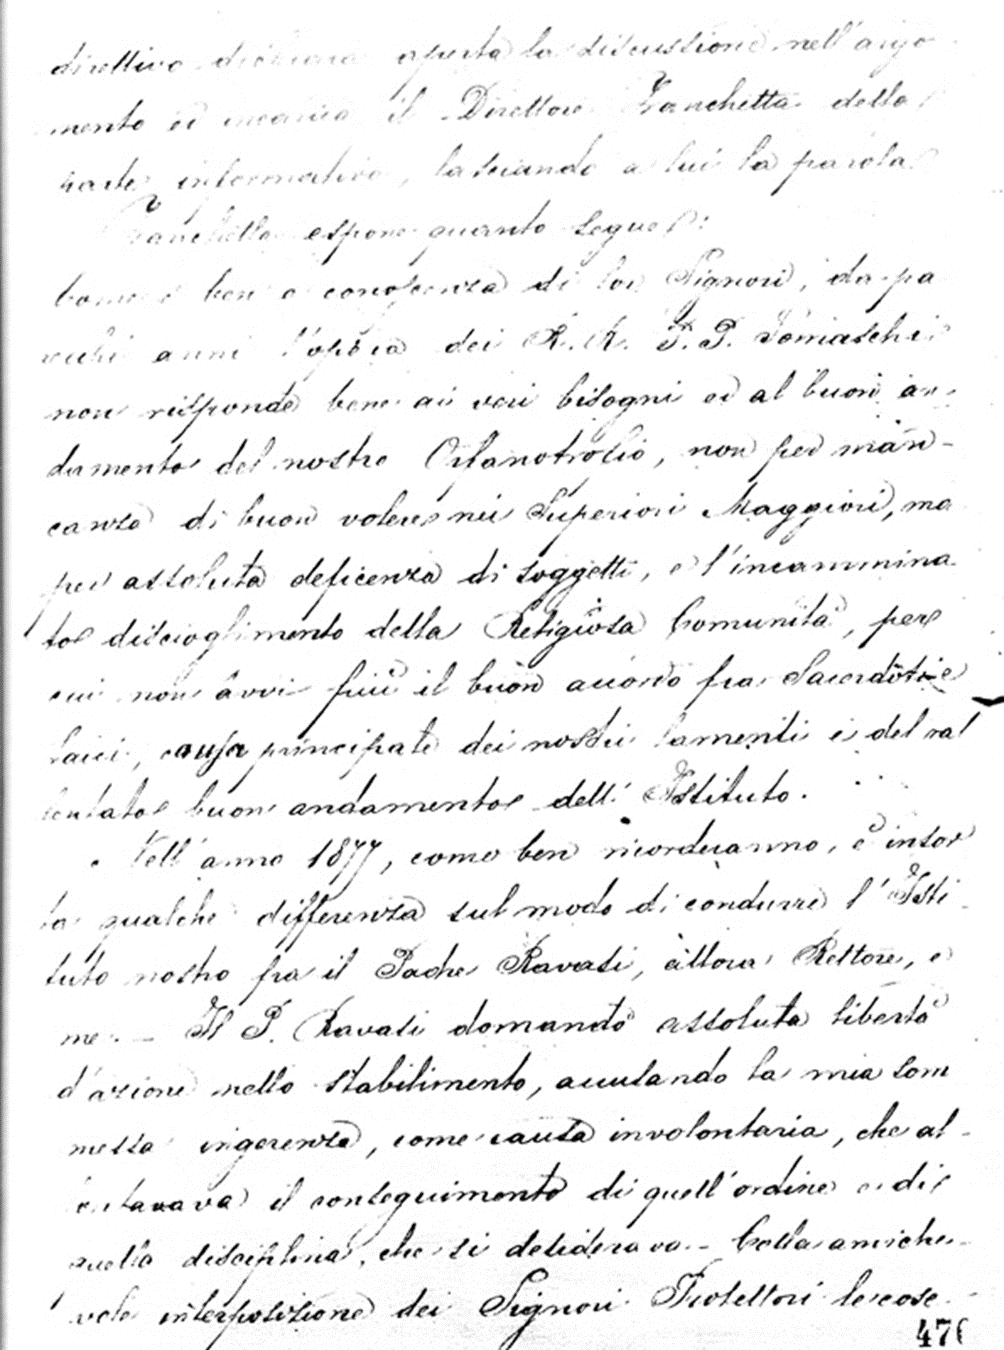 direttivo dichiara aperta la discussione nell'argo
mento ed incarica il Direttore Zanchetta della
parte informativa, lasciando a lui la parola.
Zanchetta espone quanto segue:
Come è ben a conoscenza di lor Signori, da pa
recchi anni l'opera dei R. R. P. P. Somaschi
non risponde bene ai veri bisogni ed al buon an-
damento del nostro Orfanotrofio, non per man-
canza di buon volere nei Superiori Maggiori, ma
per assoluta deficenza di soggetti, e l'incammina
to discioglimento della Religiosa Comunità, per
cui non avvi più il buon accordo fra Sacerdoti e
laici, causa principale dei nostri lamenti e del ral
lentato buon andamento dell'Istituto.
Nell'anno 1877, come ben ricorderanno, è insor
ta qualche differenza sul modo di condurre l'Isti
tuto nostro fra il Padre Ravasi, allora Rettore, e
me. - Il P. Ravasi domandò assoluta libertà
d'azione nello stabilimento, accusando la mia som
messa ingerenza, come causa involontaria, che al-
lontanava il conseguimento di quell'ordine e di
quella disciplina, che si desiderava. - Colla amiche-
vole interposizione dei Signori Protettori le cose
476